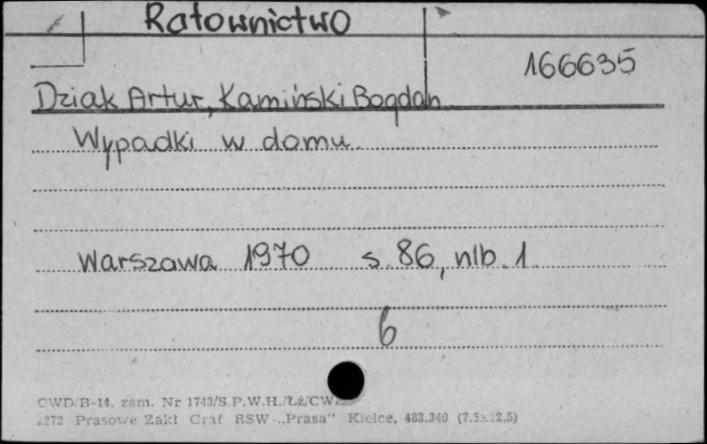 Ratownictwo
166635
Dziak Artur, Kamiński Bogdan
Wypadki w domu
Warszawa 1970 s. 86, nlb. 1
6
CWD/B-14. zam. Nr 1743/S.P.W.H./Łż/CW
2272 Prasowe Zakł Graf RSW „Prasa" Kielce, 483.340 (7.5x12,5)